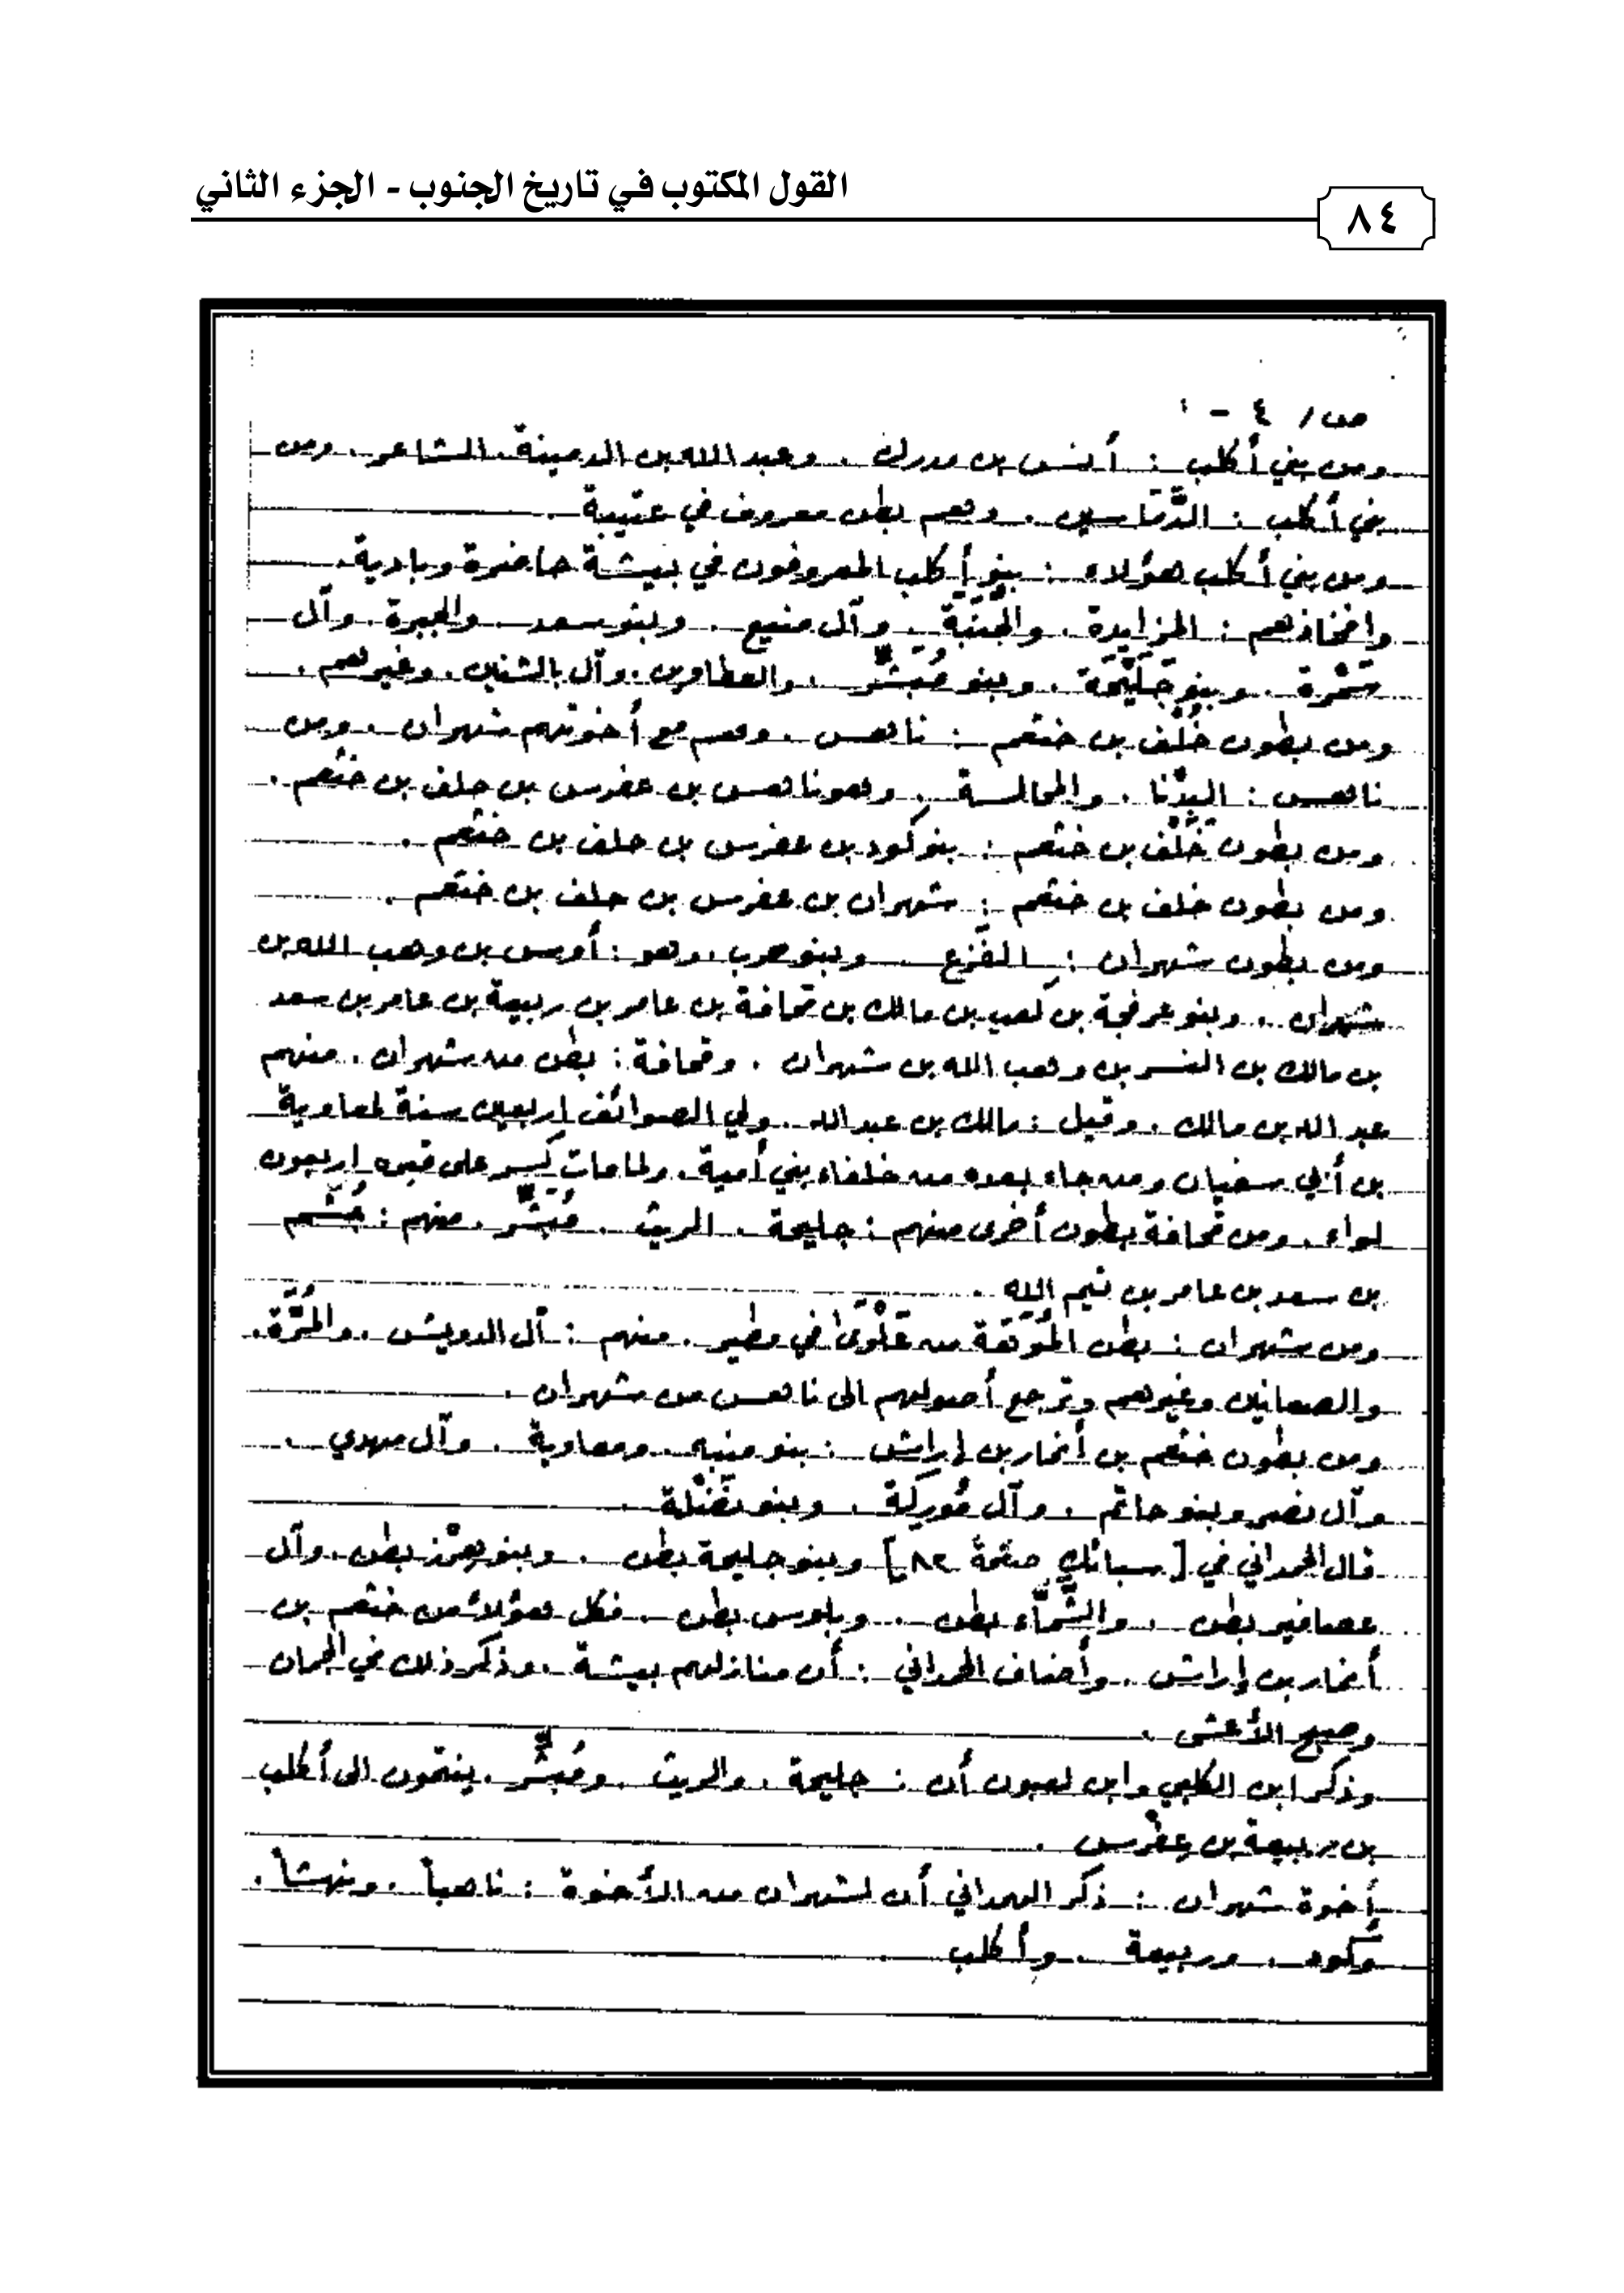 القول المكتوب في تاريخ الجنوب - الجزء الثاني
٨٤
ص/ ٤ -
ومن بني أكلب : أنس بن مدرك . وعبد الله بن الدمينة . الشاعر . ومن
بني أكلب : الدَّعَاسين . وهم بطن معروف في عتيبة .
ومن بني أكلب هؤلاء : بنو أكلب المعروفون في بيشة حاضرة وبادية .
وافخاذهم : المزايدة . والجَنَبَة . وآل منيع . وبنو سعد . والجبرة . وآل
سَمْرة . وبنو جَلَيْحَة . وبنو مُبَشِّر . والعطاوين . وآل بالشتين . وغيرهم .
ومن بطون خَلْف بن خثعم : ناهس . وهم مع أخوتهم شهران . ومن
ناهس : البِدْنا . والمحالسة . وهو ناهس بن عفرس بن حلف بن خثعم .
ومن بطون خَلْف بن خثعم : بنو كود بن عفرس بن حلف بن خثعم .
ومن بطون خلف بن خثعم : شهران بن عفرس بن حلف بن خثعم .
ومن بطون شهران : الفَزَع . وبنو حرب . وهو : أوس بن وهب الله بن
شهران . وبنو عرفجة بن كعب بن مالك بن قحافة بن عامر بن ربيعة بن عامر بن سعد
بن مالك بن النسر بن وهب الله بن شهران . وقحافة : بطن من شهران . منهم
عبد الله بن مالك . وقيل : مالك بن عبد الله . ولي الصوائف اربعين سنة لمعاوية
بن أبي سفيان ومن جاء بعده من خلفاء بني أمية . ولما مات كُسر على قبره اربعون
لواء . ومن قحافة بطون أخرى منهم : جليحة . الريث . مُبَشِّر . منهم : جُشَم
بن سعد بن عامر بن تيم الله .
ومن شهران : بطن المُوَهَة من عَلْوَى في مطير . منهم : آل الدويش . والمُرَّة .
والصعانين وغيرهم وترجع أصولهم الى ناهس من شهران .
ومن بطون خثعم بن أنمار بن إراش : بنو منبه . ومعاوية . وآل مهدي .
وآل نصر وبنو حاتم . وآل مُوركة . وبنو نَضْلة .
قال الحمداني في [ سبائك صفحة ٨٢ ] وبنو جليحة بطن . وبنو هِزْر بطن . وآل
عصافير بطن . والشَّماء بطن . وبلوس بطن . فكل هؤلاء من خثعم بن
أنمار بن إراش . وأضاف الحمداني : أن منازلهم بيشة . وذكر ذلك في الجمان
وصبح الأعشى .
وذكر ابن الكلبي وابن لعبون أن : جليحة . والريث . ومُبَشِّر . ينتمون الى أكلب
بن ربيعة بن عِفْرس .
أخوة شهران : ذكر الهمداني أن لشهران من الأخوة : ناهباً . ونهشاً .
وكود . وربيعة . وأكلب